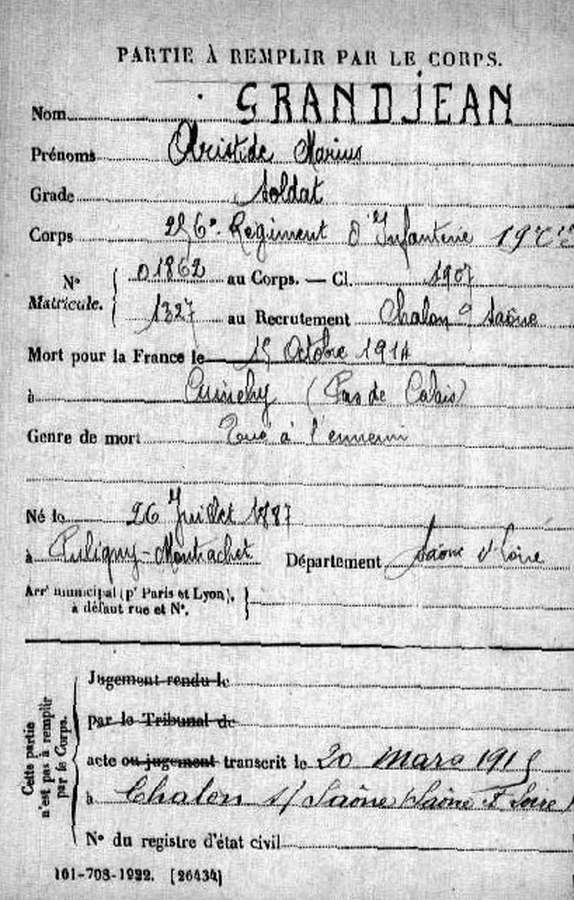 PARTIE À REMPLIR PAR LE CORPS.
Nom GRANDJEAN
Prénoms Aristide Marius
Grade Soldat
Corps 256e Régiment d'Infanterie
N° Matricule. 01862 au Corps. — Cl. 1907
1327 au Recrutement Chalon s Saône
Mort pour la France le 15 Octobre 1914
à Cuinchy (Pas de Calais)
Genre de mort Tué à l'ennemi
Né le 26 Juillet 1887
à Puligny-Montrachet Département Saône et Loire
Arrt municipal (pr Paris et Lyon),
à défaut rue et N°.
Cette partie n'est pas à remplir par le Corps.
Jugement rendu le
par le Tribunal de
acte ou jugement transcrit le 20 mars 1915
à Chalon s/ Saône (Saône et Loire)
N° du registre d'état civil
101-708-1922. [26434]